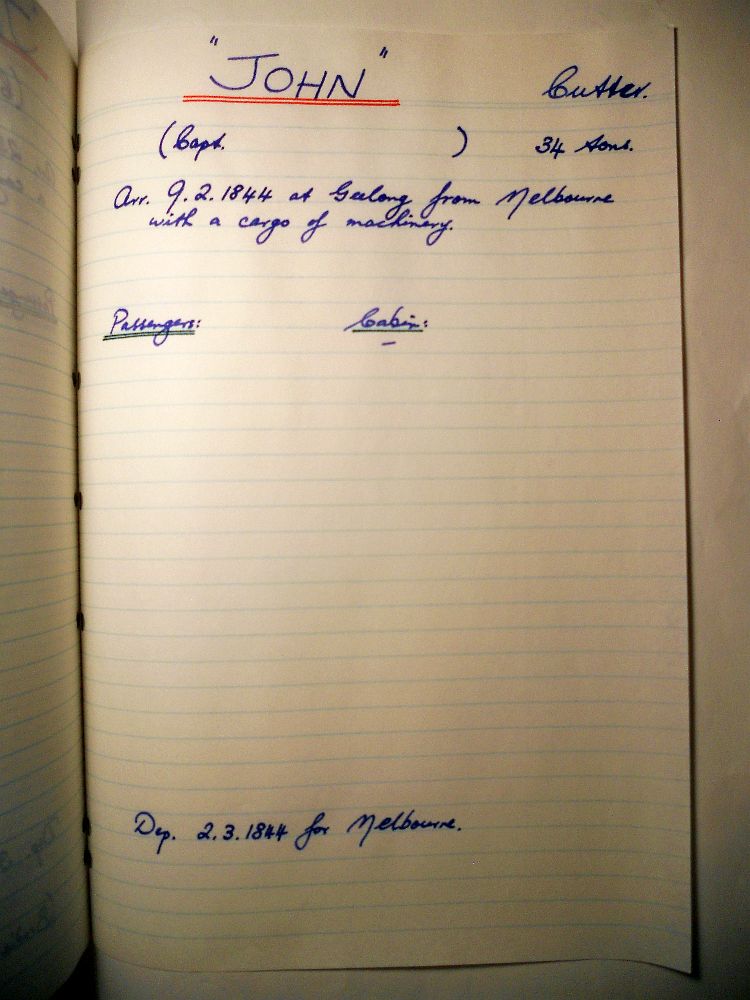 "JOHN" Cutter.
(Capt. ) 34 tons.
Arr. 9.2.1844 at Geelong from Melbourne
with a cargo of machinery.
Passengers: Cabin:
–
Dep. 2.3.1844 for Melbourne.